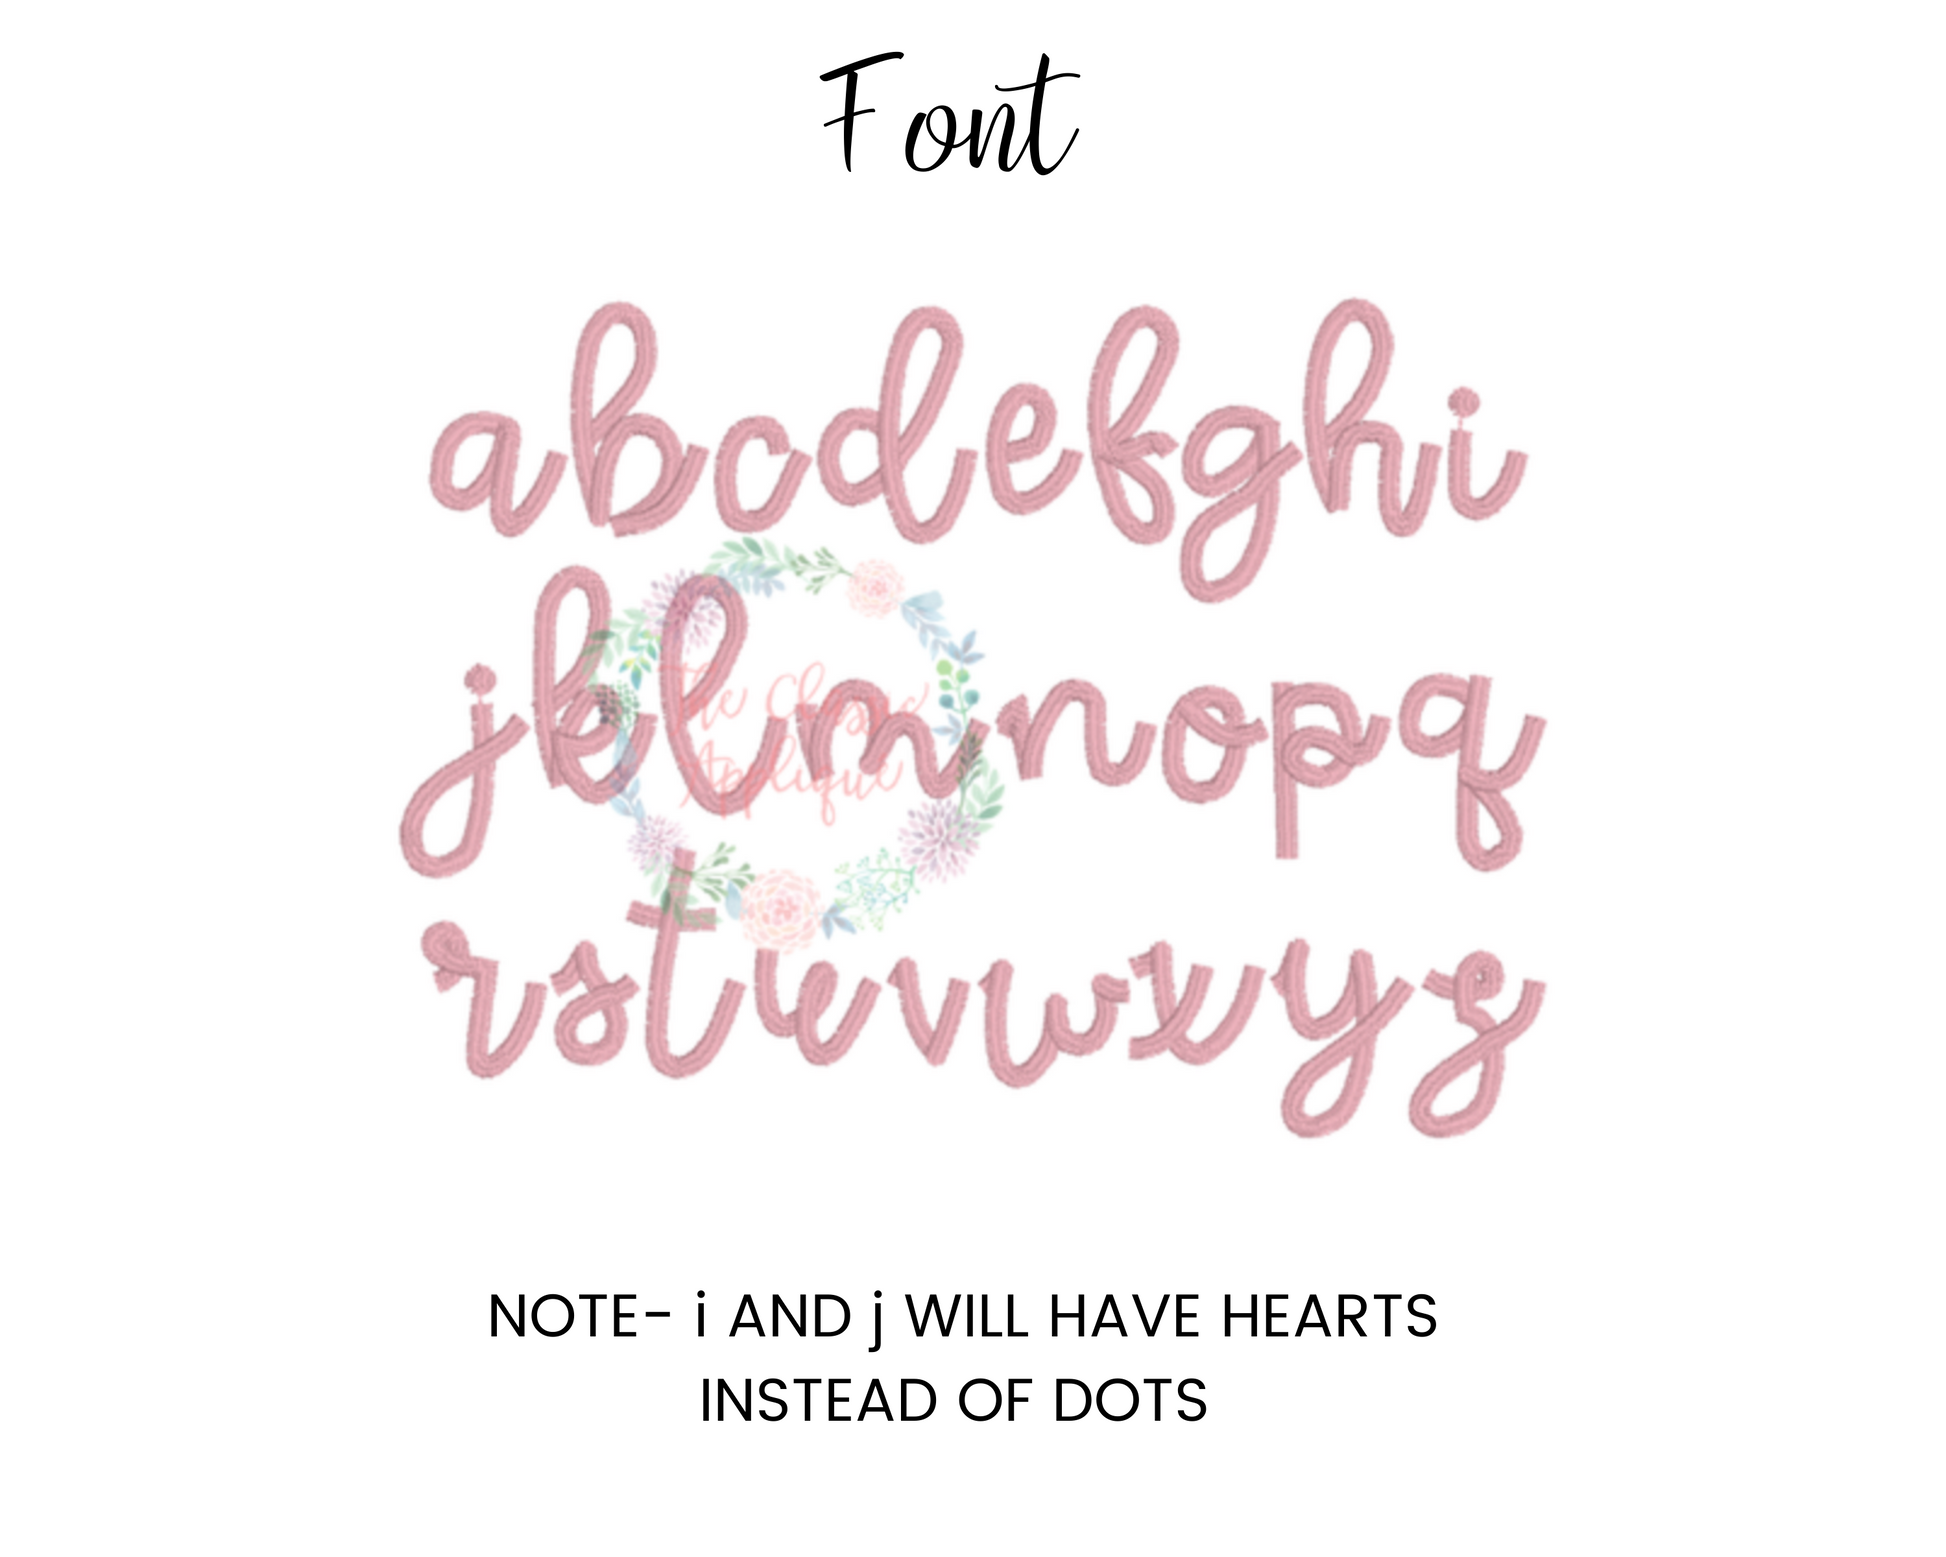 Font
abcdefghi
jklmnopq
The Classic
Applique
rstuvwxyz
NOTE- i AND j WILL HAVE HEARTS
INSTEAD OF DOTS